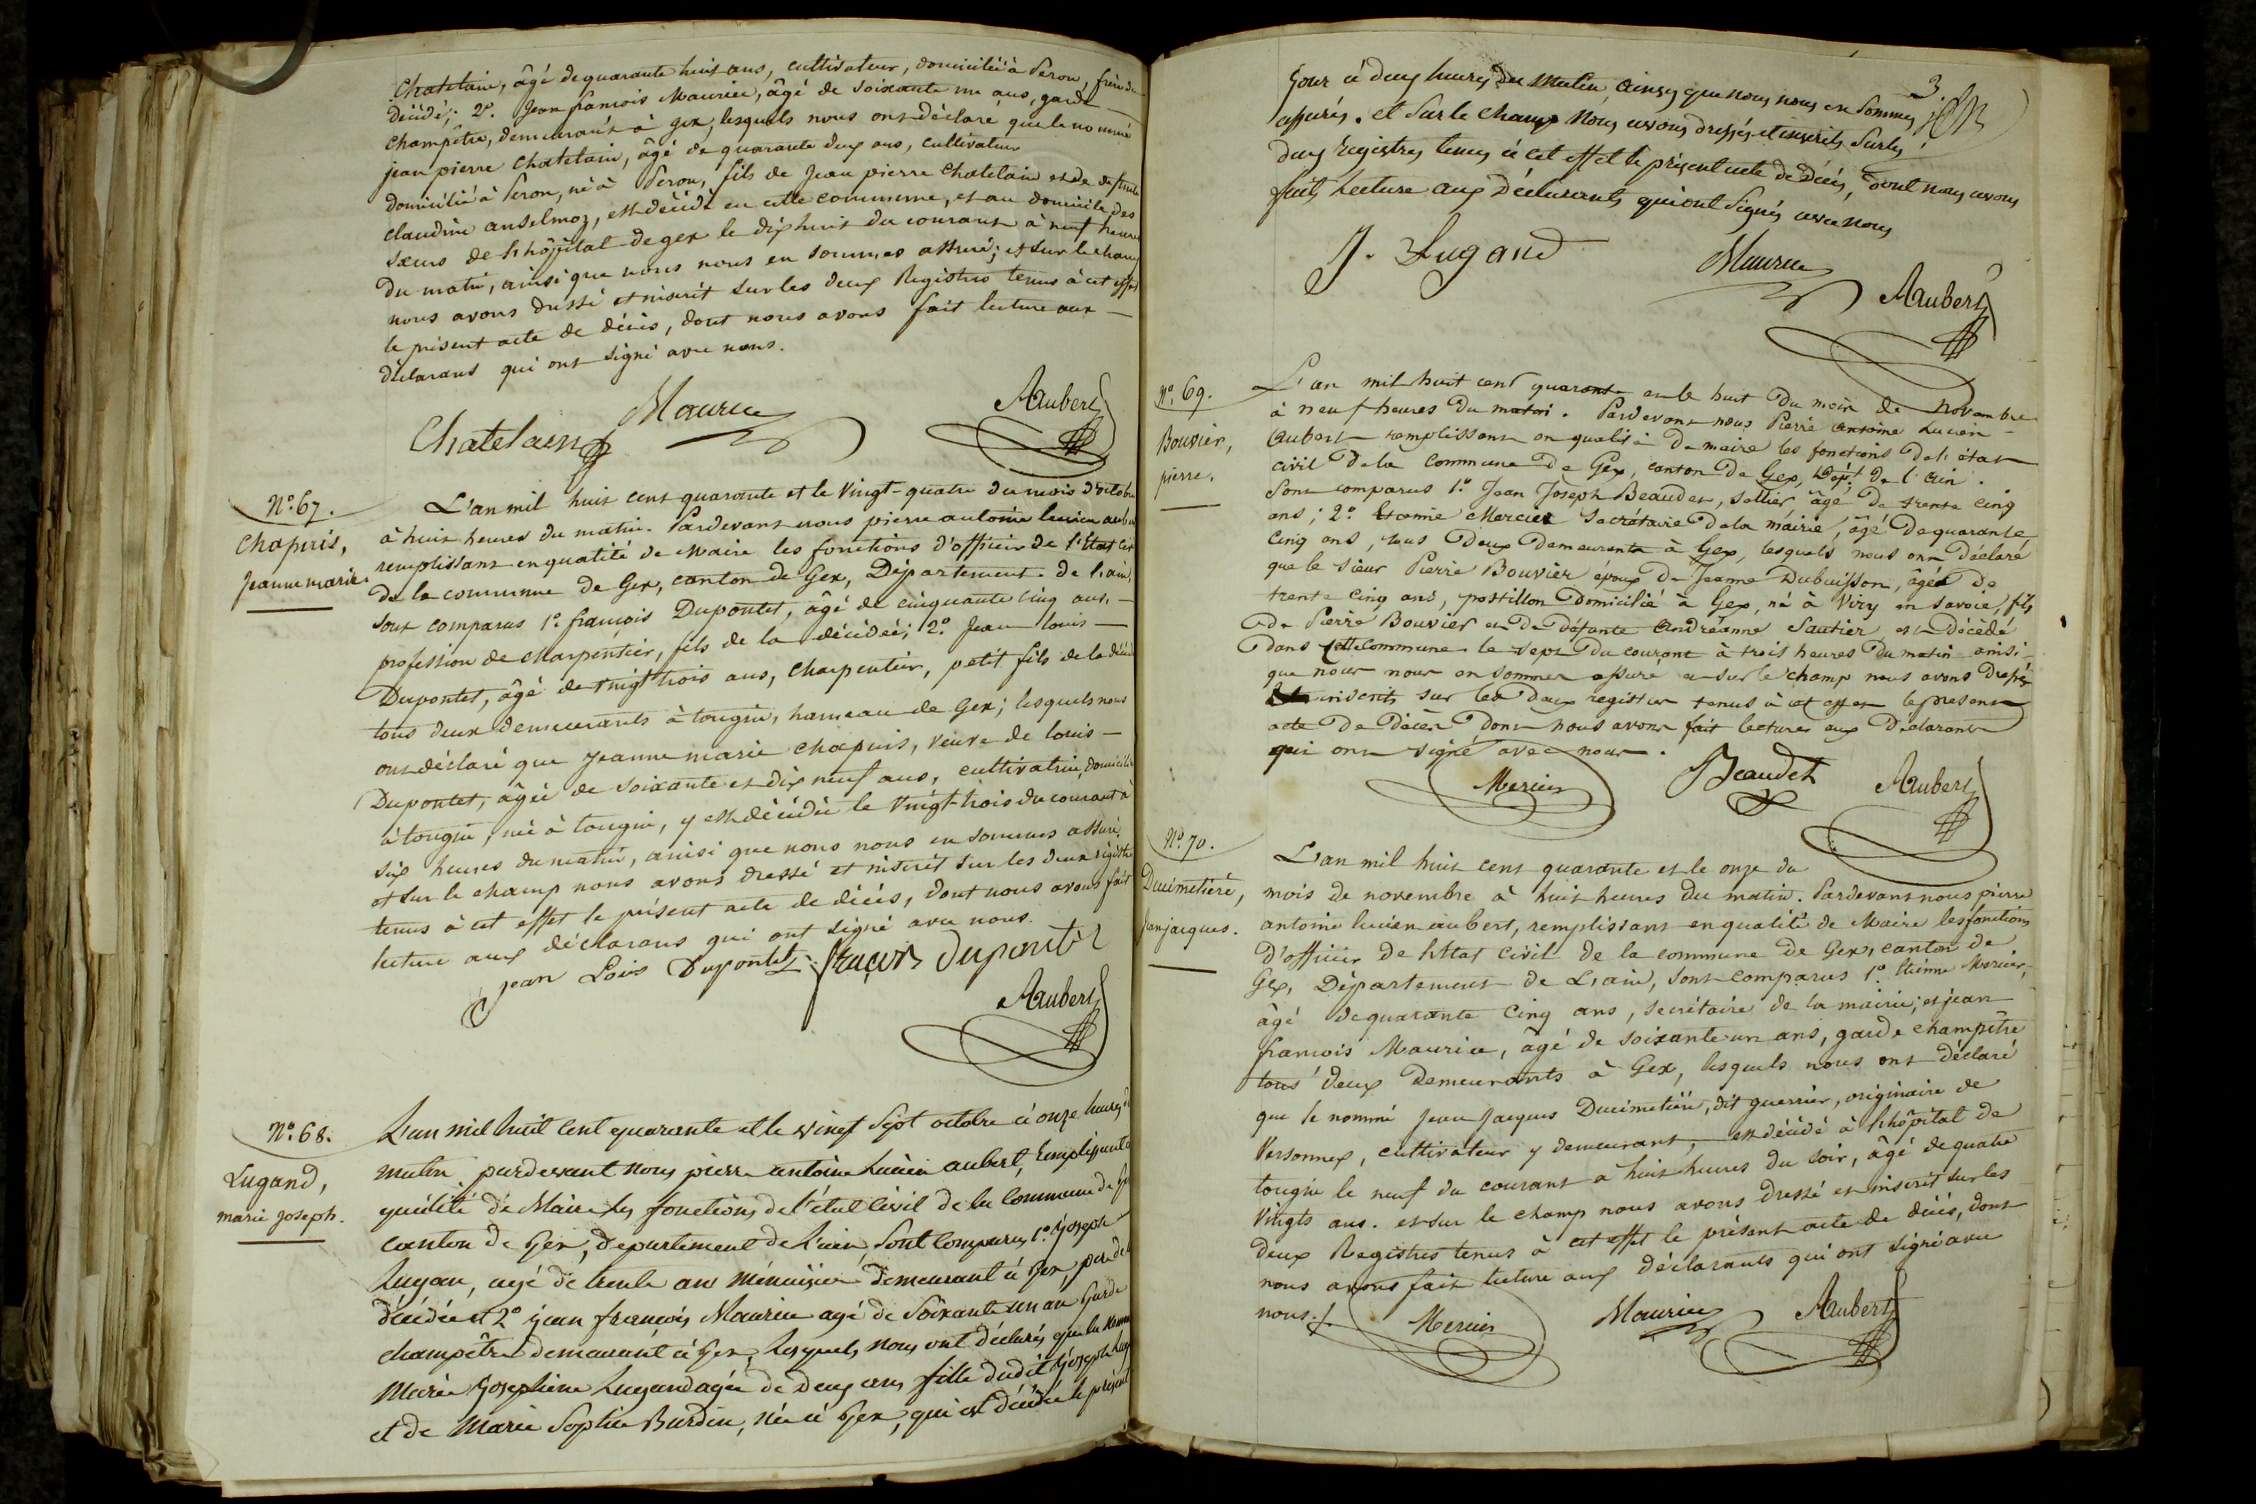 Chatelain, âgé de quarante huit ans, cultivateur, domicilié à Peron, frère du
décédé; 2º. Jean françois Maurice, âgé de soixante un ans, garde
champêtre, demeurant à gex, lesquels nous ont déclaré que le nommé
jean pierre Chatelain, âgé de quarante deux ans, cultivateur
domicilié à Peron, né à Peron, fils de Jean pierre Chatelain et de défunte
claudine anselmoz, est décédé en cette commune, et au domicile des
sœurs de l'hôpital de gex le dix huit du courant à neuf heures
du matin, ainsi que nous nous en sommes assuré; et sur le champ
nous avons dressé et inscrit sur les deux Registres tenus à cet effet
le présent acte de décès, dont nous avons fait lecture aux
déclarans qui ont signé avec nous.
Chatelain Maurice Aubert
Nº. 67.
Chapuis,
Jeanne marie.
L'an mil huit cent quarante et le vingt-quatre du mois d'octobre
à huit heures du matin. Pardevant nous pierre antoine lucien aubert
remplissant en qualité de Maire les fonctions d'officier de l'État civil
de la commune de Gex, canton de Gex, Département de l'ain,
sont comparus 1º. françois Dupontet, âgé de cinquante cinq ans,
profession de charpentier, fils de la décédée; 2º. Jean louis
Dupontet, âgé de vingt trois ans, charpentier, petit fils de la décédée
tous deux demeurants à tougin, hameau de Gex; lesquels nous
ont déclaré que Jeanne marie chapuis, veuve de louis
Dupontet, âgée de soixante et dix neuf ans, cultivatrice, domiciliée
à tougin, née à tougin, y est décédée le vingt-trois du courant à
six heures du matin, ainsi que nous nous en sommes assuré.
et sur le champ nous avons dressé et inscrit sur les deux registres
tenus à cet effet le présent acte de décès, dont nous avons fait
lecture aux déclarans qui ont signé avec nous.
Jean Lois Dupontet françois Dupontet
Aubert
Nº. 68.
Lugand,
marie joseph.
L'an mil huit cent quarante et le vingt sept octobre à onze heures du
matin pardevant nous pierre antoine Lucien aubert, remplissant en
qualité de Maire les fonctions de l'état Civil de la Commune de Gex
canton de Gex, departement de L'ain, Sont Comparus 1º. Joseph
Lugan, agé de trente ans Menuisier demeurant à Gex, pere de la
décédée et 2º jean francois Maurice agé de Soixante un an Garde
champêtre demeurant à Gex, lesquels nous ont déclarés que la nommée
Marie Josephine Lugand agée de Deux ans fille dudit Joseph Lugand
et de Marie Sophie Burdin, née à Gex, qui est décédée le présent
3.
jour à deux heures du Matin, ainsy que nous nous en Sommes
assurés. et Sur le champ Nous avons dressés et inscrits Sur les
deux Registres tenus à cet effet le présent acte de Décès, dont nous avons
fait Lecture aux Déclarants qui ont Signés avec nous
J. Lugand Maurice Aubert
Nº. 69.
Bouvier,
pierre.
L'an mil huit cent quarante et le huit du mois de Novembre
à neuf heures du matin. Pardevant nous Pierre antoine Lucien
Aubert remplissant en qualité de maire les fonctions de l'état
civil de la Commune de Gex, canton de Gex, Dépt. de l'Ain.
Sont comparus 1º. Jean Joseph Beaudet, sellier âgé de trente cinq
ans; 2º. Etienne Mercier Secrétaire de la mairie, âgé de quarante
cinq ans, tous deux demeurants à Gex, lesquels nous ont déclaré
que le sieur Pierre Bouvier époux de Jeanne Dubuisson, âgé de
trente cinq ans, postillon domicilié à Gex, né à Viry en Savoie, fils
de Pierre Bouvier et de défunte Andréanne Sautier, est décédé
dans cette commune le sept du courant à trois heures du matin ainsi
que nous nous en sommes assuré et sur le champ nous avons dressé
inscrit sur les deux registres tenus à cet effet le présent
acte de décès dont nous avons fait lecture aux Déclarants
qui ont signé avec nous.
Mercier Beaudet Aubert
Nº. 70.
Ducimetière,
jean jacques.
L'an mil huit cent quarante et le onze du
mois de novembre à huit heures du matin. Pardevant nous pierre
antoine lucien aubert, remplissant en qualité de Maire les fonctions
d'officier de l'état civil de la commune de Gex, canton de
Gex, Département de L'ain, sont comparus 1º. Etienne Mercier,
âgé de quarante cinq ans, secrétaire de la mairie, et jean
françois Maurice, âgé de soixante un ans, garde champêtre
tous deux demeurants à Gex, lesquels nous ont déclaré
que le nommé Jean Jacques Ducimetière, dit guerrier, originaire de
Versonnex, cultivateur y demeurant, est décédé à l'hôpital de
tougin le neuf du courant à huit heures du soir, âgé de quatre
vingts ans. et sur le champ nous avons dressé et inscrit sur les
deux Registres tenus à cet effet le présent acte de décès, dont
nous avons fait lecture aux déclarants qui ont signé avec
nous./.
Mercier Maurice Aubert